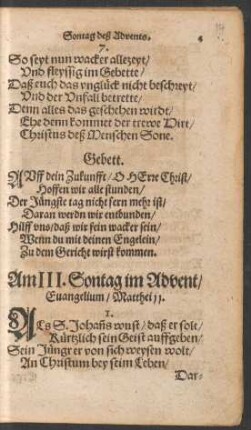 Sontag deß Advents. 4
7.
So seyt nun wacker allezeyt/
Vnd fleyssig im Gebette/
Daß euch das vnglück nicht beschreyt/
Vnd der Vnfall betrette/
Denn alles das geschehen wirdt/
Ehe denn kommet der trewe Hirt/
Christus deß Menschen Sone.
Gebett.
AUff dein Zukunfft/ O HErre Christ/
Hoffen wir alle stunden/
Der Jüngste tag nicht fern mehr ist/
Daran werdn wir entbunden/
Hilff vns/ daß wir fein wacker sein/
Wenn du mit deinen Engelein/
Zu dem Gericht wirst kommen.
Am III. Sontag im Advent/
Euangelium/ Matthei 11.
1.
ALs S. Johañs wust/ daß er solt/
Kürtzlich sein Geist auffgeben/
Sein Jüngrer von sich weysen wolt/
An Christum bey seim Leben/
Dar-